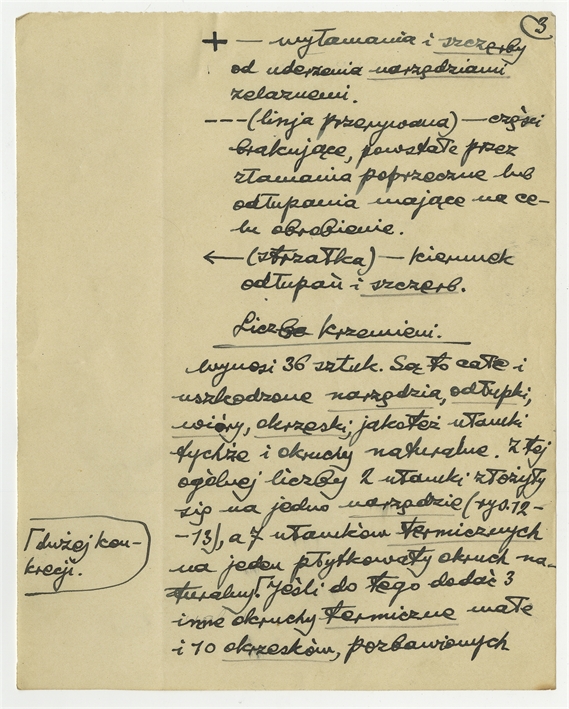 3
+ — wyłamania i szczerby
od uderzenia narzędziami
żelaznemi.
--- (linja przerywana) — części
brakujące, powstałe przez
złamania poprzeczne lub
odłupania mające na ce-
lu obrobienie.
← (strzałka) — kierunek
odłupań i szczerb.
Liczba krzemieni.
wynosi 36 sztuk. Są to całe i
uszkodzone narzędzia, odłupki,
wióry, okrzeski, jakoteż ułamki
tychże i okruchy naturalne. Z tej
ogólnej liczby 2 ułamki złożyły
się na jedno narzędzie (ryc. 12-
-13), a 7 ułamków termicznych
na jeden płytkowaty okruch na-
turalny Γ. Jeśli do tego dodać 3
inne okruchy termiczne małe
i 10 okrzesków, pozbawionych
Γ dużej kon-
krecji.